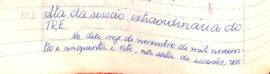 Ata da sessão extraordinária do
TRE.
No dia onze de novembro de mil novecen-
tos e cinquenta e oito, na sala de sessões, reu-